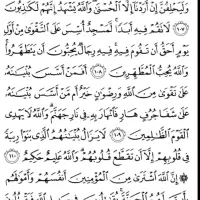 وَلَيَحْلِفُنَّ إِنْ أَرَدْنَآ إِلَّا ٱلْحُسْنَىٰ وَٱللَّهُ يَشْهَدُ إِنَّهُمْ لَكَٰذِبُونَ
١٠٧ لَا تَقُمْ فِيهِ أَبَدًا لَّمَسْجِدٌ أُسِّسَ عَلَى ٱلتَّقْوَىٰ مِنْ أَوَّلِ
يَوْمٍ أَحَقُّ أَن تَقُومَ فِيهِ فِيهِ رِجَالٌ يُحِبُّونَ أَن يَتَطَهَّرُوا۟
وَٱللَّهُ يُحِبُّ ٱلْمُطَّهِّرِينَ ١٠٨ أَفَمَنْ أَسَّسَ بُنْيَٰنَهُۥ
عَلَىٰ تَقْوَىٰ مِنَ ٱللَّهِ وَرِضْوَٰنٍ خَيْرٌ أَم مَّنْ أَسَّسَ بُنْيَٰنَهُۥ
عَلَىٰ شَفَا جُرُفٍ هَارٍ فَٱنْهَارَ بِهِۦ فِى نَارِ جَهَنَّمَ وَٱللَّهُ لَا يَهْدِى
ٱلْقَوْمَ ٱلظَّٰلِمِينَ ١٠٩ لَا يَزَالُ بُنْيَٰنُهُمُ ٱلَّذِى بَنَوْا۟ رِيبَةً
فِى قُلُوبِهِمْ إِلَّآ أَن تَقَطَّعَ قُلُوبُهُمْ وَٱللَّهُ عَلِيمٌ حَكِيمٌ ١١٠
۞ إِنَّ ٱللَّهَ ٱشْتَرَىٰ مِنَ ٱلْمُؤْمِنِينَ أَنفُسَهُمْ وَأَمْوَٰلَهُم